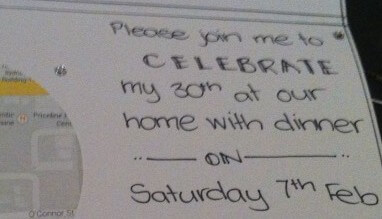 Please join me to
CELEBRATE
my 30th at our
home with dinner
ON
Saturday 7th Feb
O'Connor St